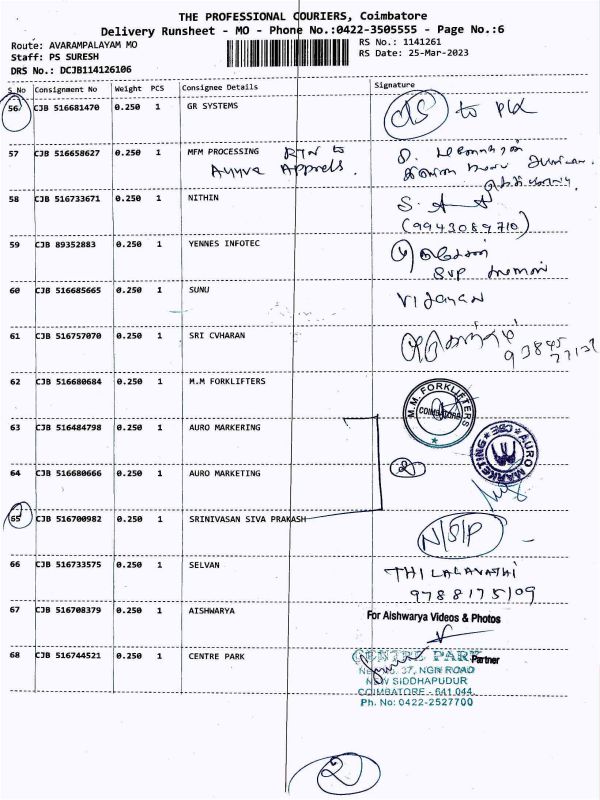 THE PROFESSIONAL COURIERS, Coimbatore
Delivery Runsheet - MO - Phone No.:0422-3505555 - Page No.:6
Route: AVARAMPALAYAM MO
RS No.: 1141261
Staff: PS SURESH
RS Date: 25-Mar-2023
DRS No.: DCJB114126106
S.No Consignment No Weight PCS Consignee Details Signature
56 CJB 516681470 0.250 1 GR SYSTEMS
57 CJB 516658627 0.250 1 MFM PROCESSING RTN to
58 CJB 516733671 0.250 1 NITHIN
(9943089710)
59 CJB 89352883 0.250 1 YENNES INFOTEC
60 CJB 516685665 0.250 1 SUNU Vijayan
61 CJB 516757070 0.250 1 SRI CVHARAN
62 CJB 516680684 0.250 1 M.M FORKLIFTERS
M.M. FORKLIFTERS
COIMBATORE
63 CJB 516484798 0.250 1 AURO MARKERING
360 AURO MARKETING
64 CJB 516680666 0.250 1 AURO MARKETING 2
65 CJB 516700982 0.250 1 SRINIVASAN SIVA PRAKASH N/S/P
66 CJB 516733575 0.250 1 SELVAN THILAGAVATHI
9788175109
67 CJB 516708379 0.250 1 AISHWARYA
For Aishwarya Videos & Photos
Partner
68 CJB 516744521 0.250 1 CENTRE PARK
CENTRE PARK
37, NGR ROAD
NEW SIDDHAPUDUR
COIMBATORE - 641 044.
Ph. No: 0422-2527700
2